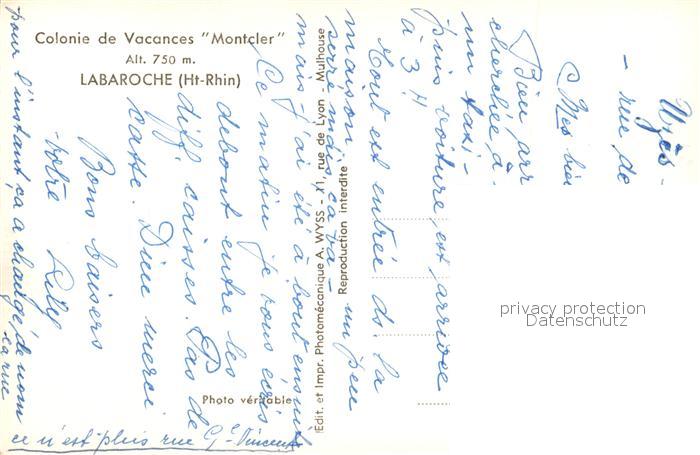 Colonie de Vacances "Montcler"
Alt. 750 m.
LABAROCHE (Ht-Rhin)
Uzès -
- rue de
Mes bien
Bien arr
cherchée, d
un taxi -
puis voiture est arrivée
à 3 H
tout est entrée ds. la
maison. un peu
serré mais ça va -
mais j'ai été à bout ensuite
Ce matin je vous écris
debout entre les
diff. caisses. Pas de
casse. Dieu merci
Bons baisers
votre Lily
pour l'instant, ça a changé de nom
la rue
ce n'est plus rue Gl Vincent
Edit. et Impr. Photomécanique A. WYSS - 11, rue de Lyon - Mulhouse
Reproduction interdite
Photo véritable
privacy protection
Datenschutz